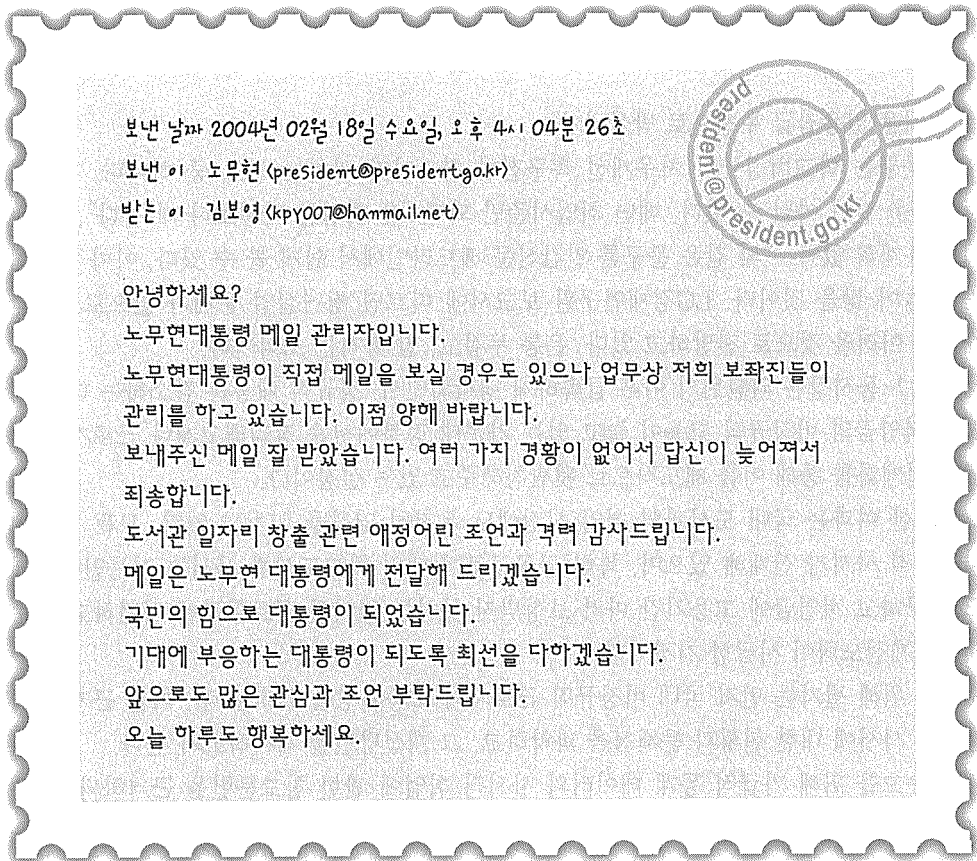 보낸 날짜 2004년 02월 18일 수요일, 오후 4시 04분 26초
보낸 이 노무현 <president@president.go.kr>
받는 이 김보영 <kpy007@hanmail.net>
president@president.go.kr
안녕하세요?
노무현대통령 메일 관리자입니다.
노무현대통령이 직접 메일을 보실 경우도 있으나 업무상 저희 보좌진들이
관리를 하고 있습니다. 이점 양해 바랍니다.
보내주신 메일 잘 받았습니다. 여러 가지 경황이 없어서 답신이 늦어져서
죄송합니다.
도서관 일자리 창출 관련 애정어린 조언과 격력 감사드립니다.
메일은 노무현 대통령에게 전달해 드리겠습니다.
국민의 힘으로 대통령이 되었습니다.
기대에 부응하는 대통령이 되도록 최선을 다하겠습니다.
앞으로도 많은 관심과 조언 부탁드립니다.
오늘 하루도 행복하세요.